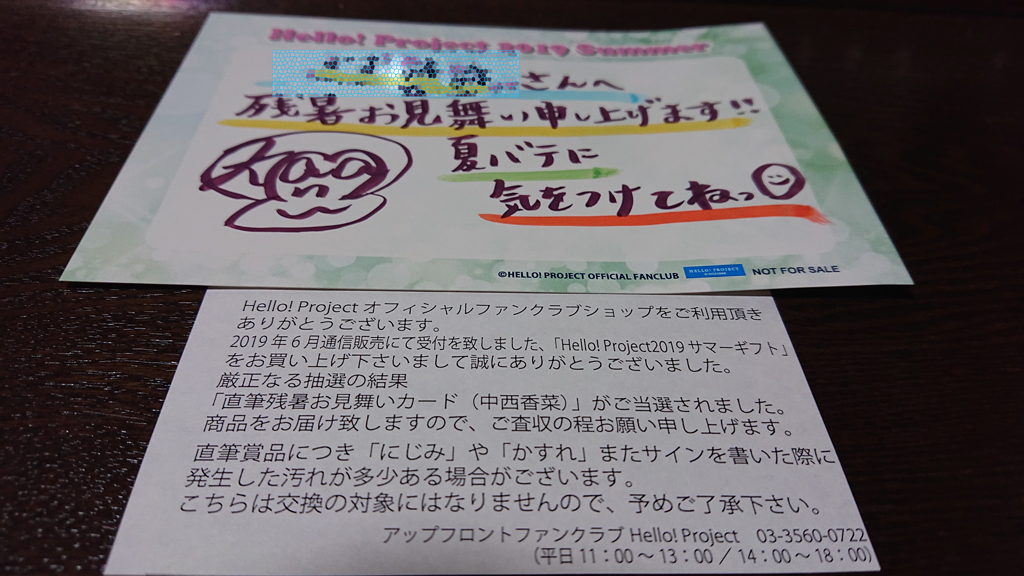 Hello! Project 2019 Summer
さんへ
残暑お見舞い申し上げます!!
夏バテに
気をつけてねっ
©HELLO! PROJECT OFFICIAL FANCLUB HELLO! PROJECT NOT FOR SALE
Hello! Project オフィシャルファンクラブショップをご利用頂き
ありがとうございます。
2019年6月通信販売にて受付を致しました、「Hello! Project2019 サマーギフト」
をお買い上げ下さいまして誠にありがとうございました。
厳正なる抽選の結果
「直筆残暑お見舞いカード（中西香菜）」がご当選されました。
商品をお届け致しますので、ご査収の程お願い申し上げます。
直筆賞品につき「にじみ」や「かすれ」またサインを書いた際に
発生した汚れが多少ある場合がございます。
こちらは交換の対象にはなりませんので、予めご了承下さい。
アップフロントファンクラブ Hello! Project 03-3560-0722
（平日 11：00～13：00 / 14：00～18：00）